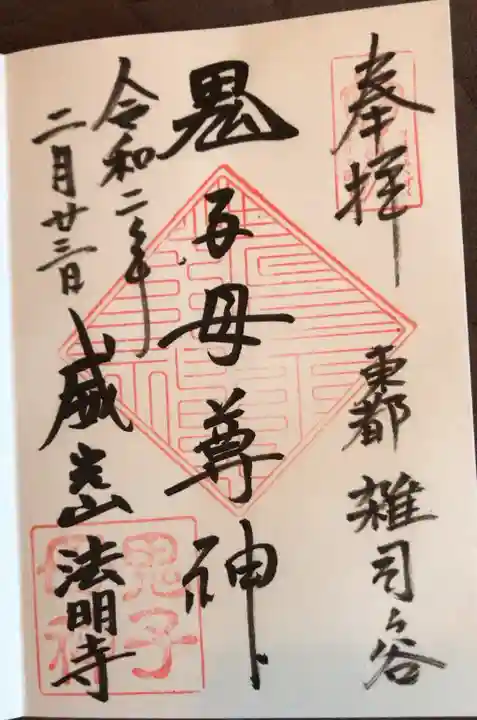 奉拝
東都 雑司谷
鬼子母尊神
令和二年
二月廿三日
威光山 法明寺
鬼子
母神